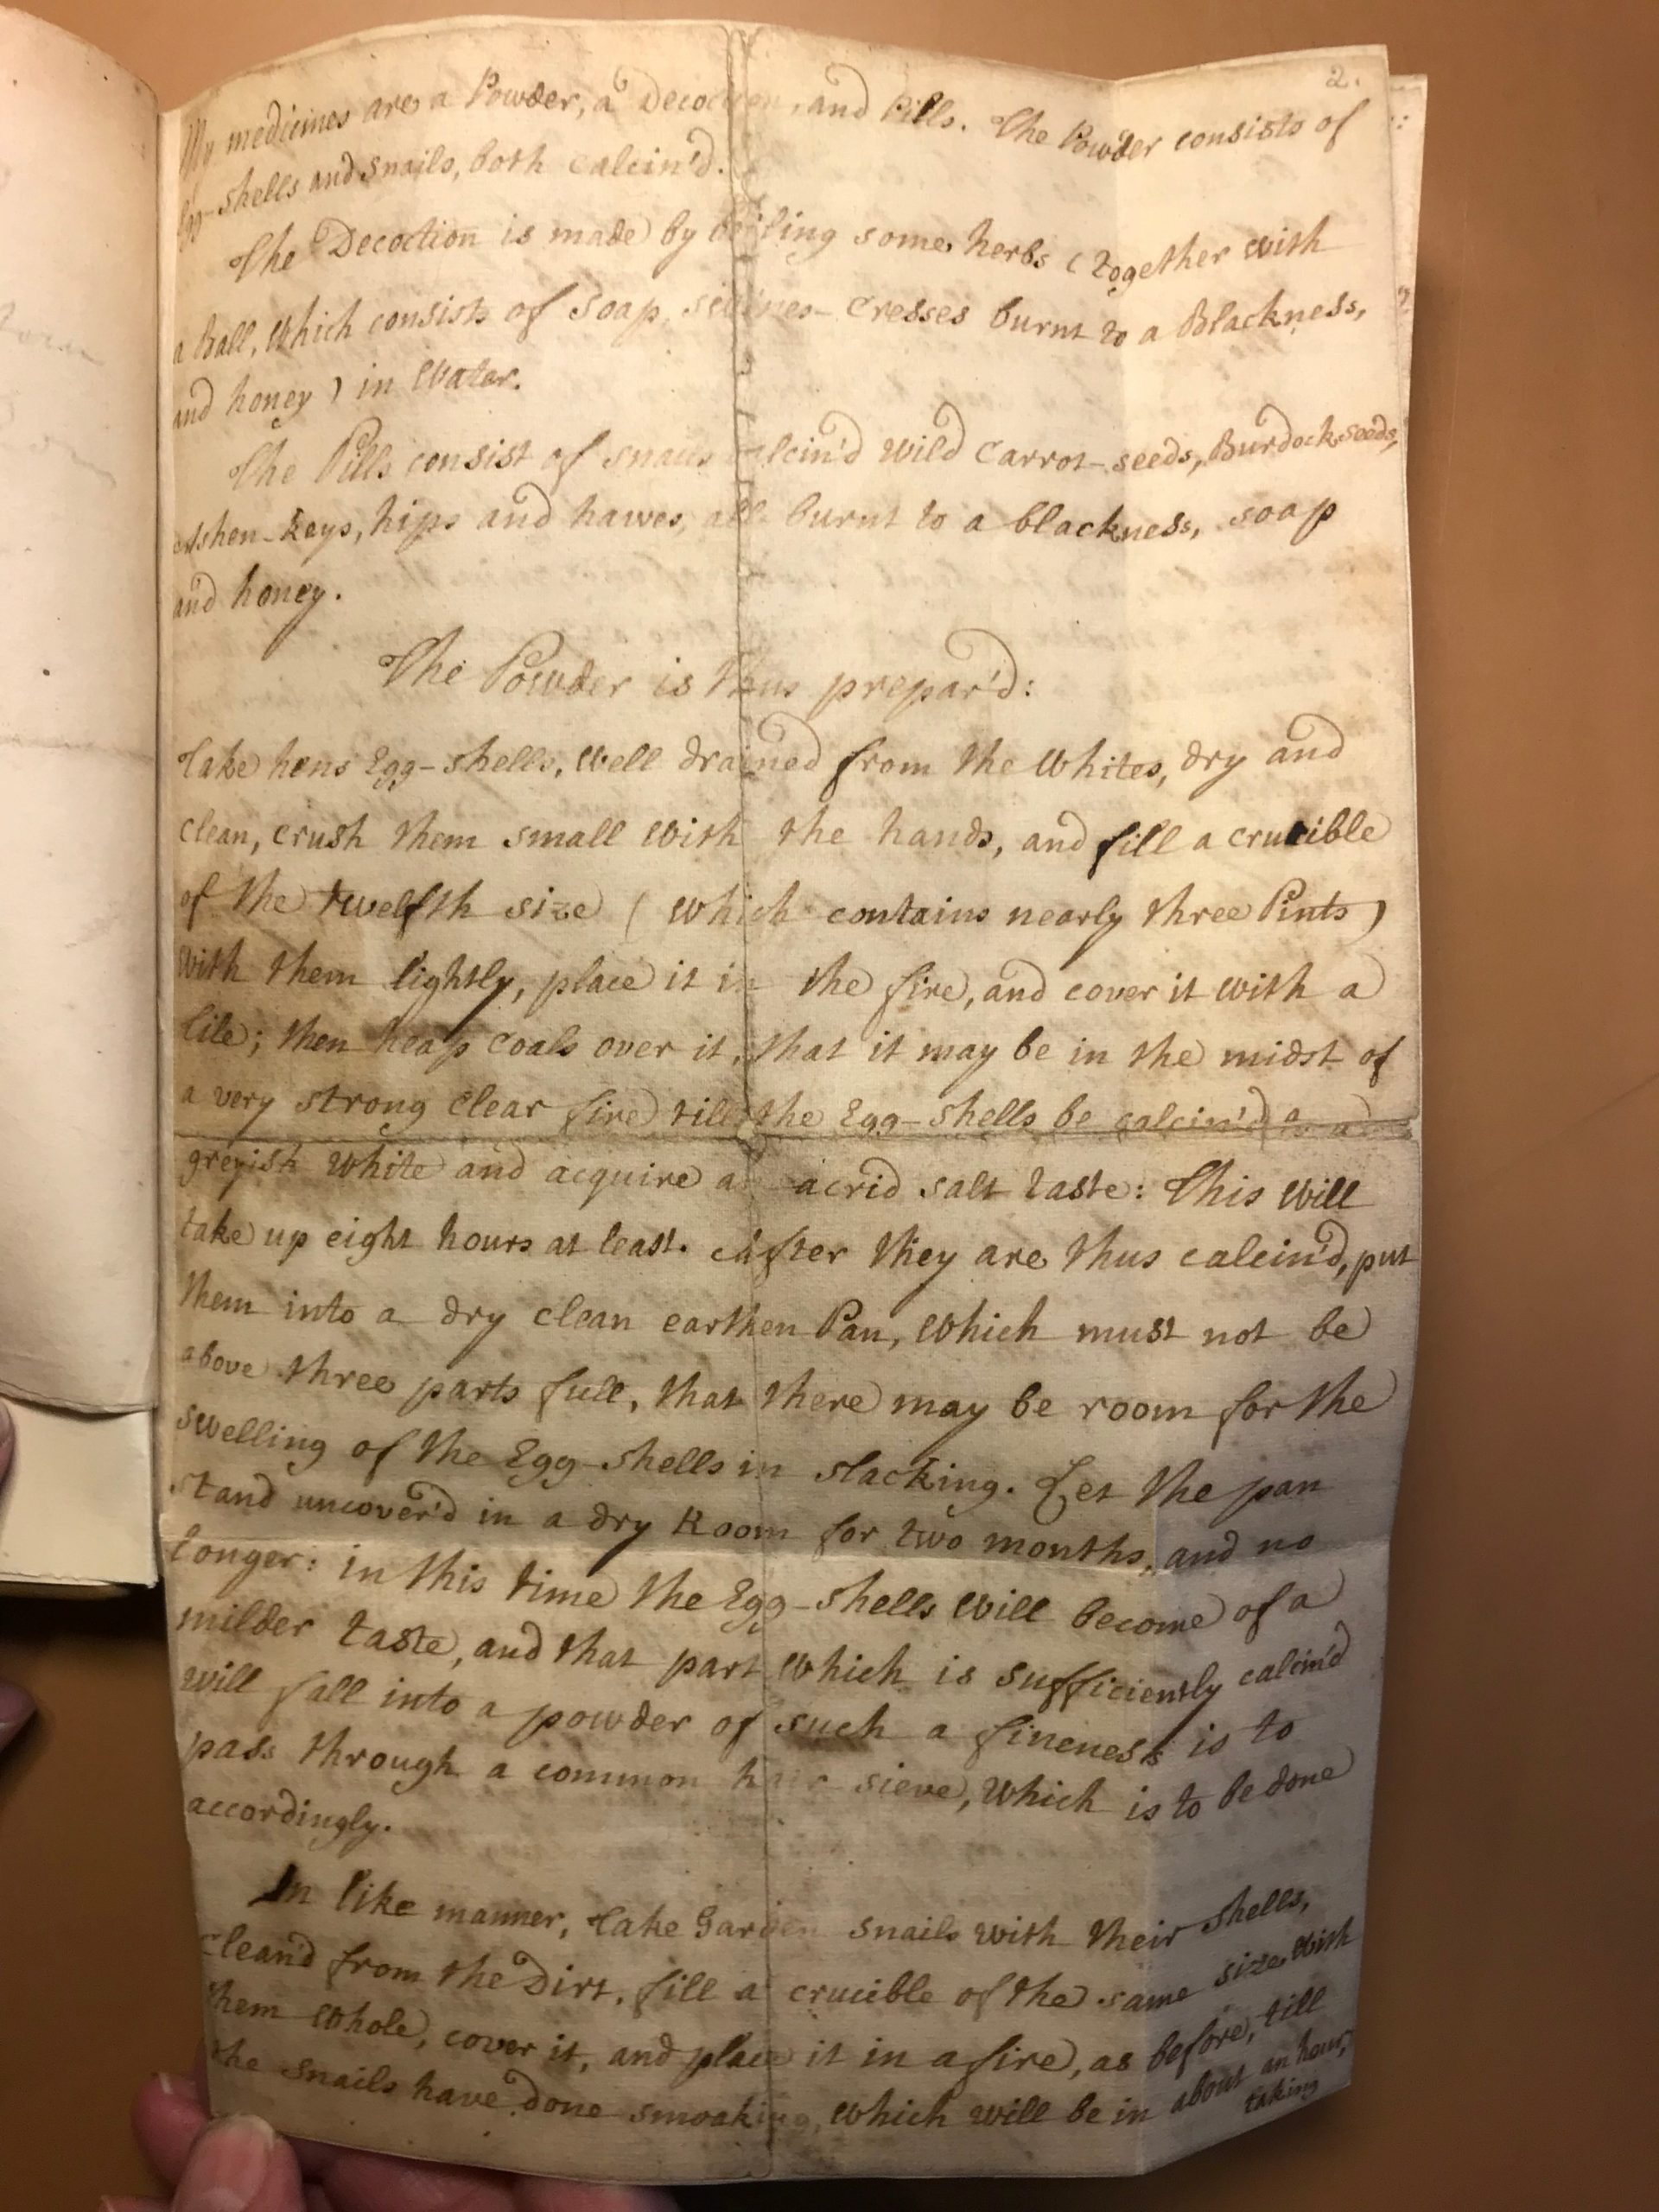 2.
My medicines are a Powder, a Decoction, and Pills. The Powder consists of
Egg-shells and Snails, both Calcin'd.
The Decoction is made by boiling some herbs (together with
a Ball, which consists of Soap, swines-Cresses burnt to a Blackness,
and honey) in Water.
The Pills consist of snails calcin'd wild Carrot-seeds, Burdock seeds,
Ashen-Keys, hips and hawes, all burnt to a blackness, soap
and honey.
The Powder is thus prepar'd:
Take hens Egg-shells, well drained from the Whites, dry and
clean, crush them small with the hands, and fill a crucible
of the twelfth size (which contains nearly three Pints)
with them lightly, place it in the fire, and cover it with a
tile; then heap coals over it, that it may be in the midst of
a very strong clear fire till the Egg-shells be calcin'd to a
greyish white and acquire an acrid salt taste: This will
take up eight hours at least. After they are thus calcin'd, put
them into a dry clean earthen Pan, which must not be
above three parts full, that there may be room for the
swelling of the Egg-shells in slacking. Let the pan
stand uncover'd in a dry Room for two months, and no
longer: in this time the Egg-shells will become of a
milder taste, and that part which is sufficiently calcin'd
will fall into a powder of such a fineness is to
pass through a common hair sieve, which is to be done
accordingly.
In like manner, take Garden snails with their shells,
clean'd from the Dirt, fill a crucible of the same size with
them whole, cover it, and place it in a fire, as before, till
the snails have done smoaking, which will be in about an hour,
taking